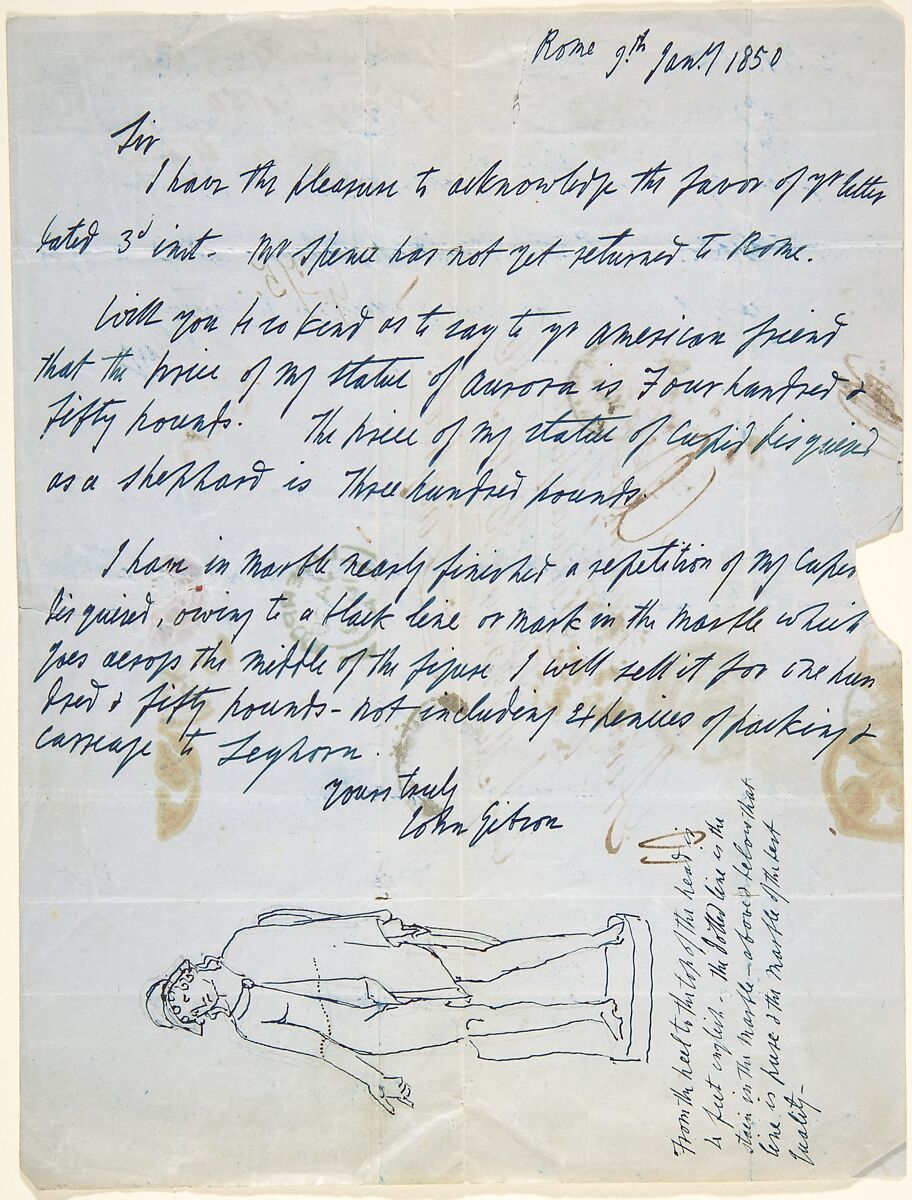 Rome 9.th Jany 1850
Sir
I have the pleasure to acknowledge the favor of yr letter
dated 3d inst. Mr Spence has not yet returned to Rome.
Will you be so kind as to say to yr American friend
that the price of my statue of Aurora is Four hundred &
fifty pounds. The price of my statue of Cupid disguised
as a shephard is Three hundred pounds.
I have in marble nearly finished a repetition of my Cupid
disguised, owing to a black line or mark in the marble which
goes across the middle of the figure I will sell it for one hun
dred & fifty pounds - not including expences of packing &
carreage to Leghorn.
yours truly
John Gibson
From the heel to the top of the head is
4 feet english - the dotted line is the
stain in the marble - above & below that
line is pure & the marble of the best
quality -